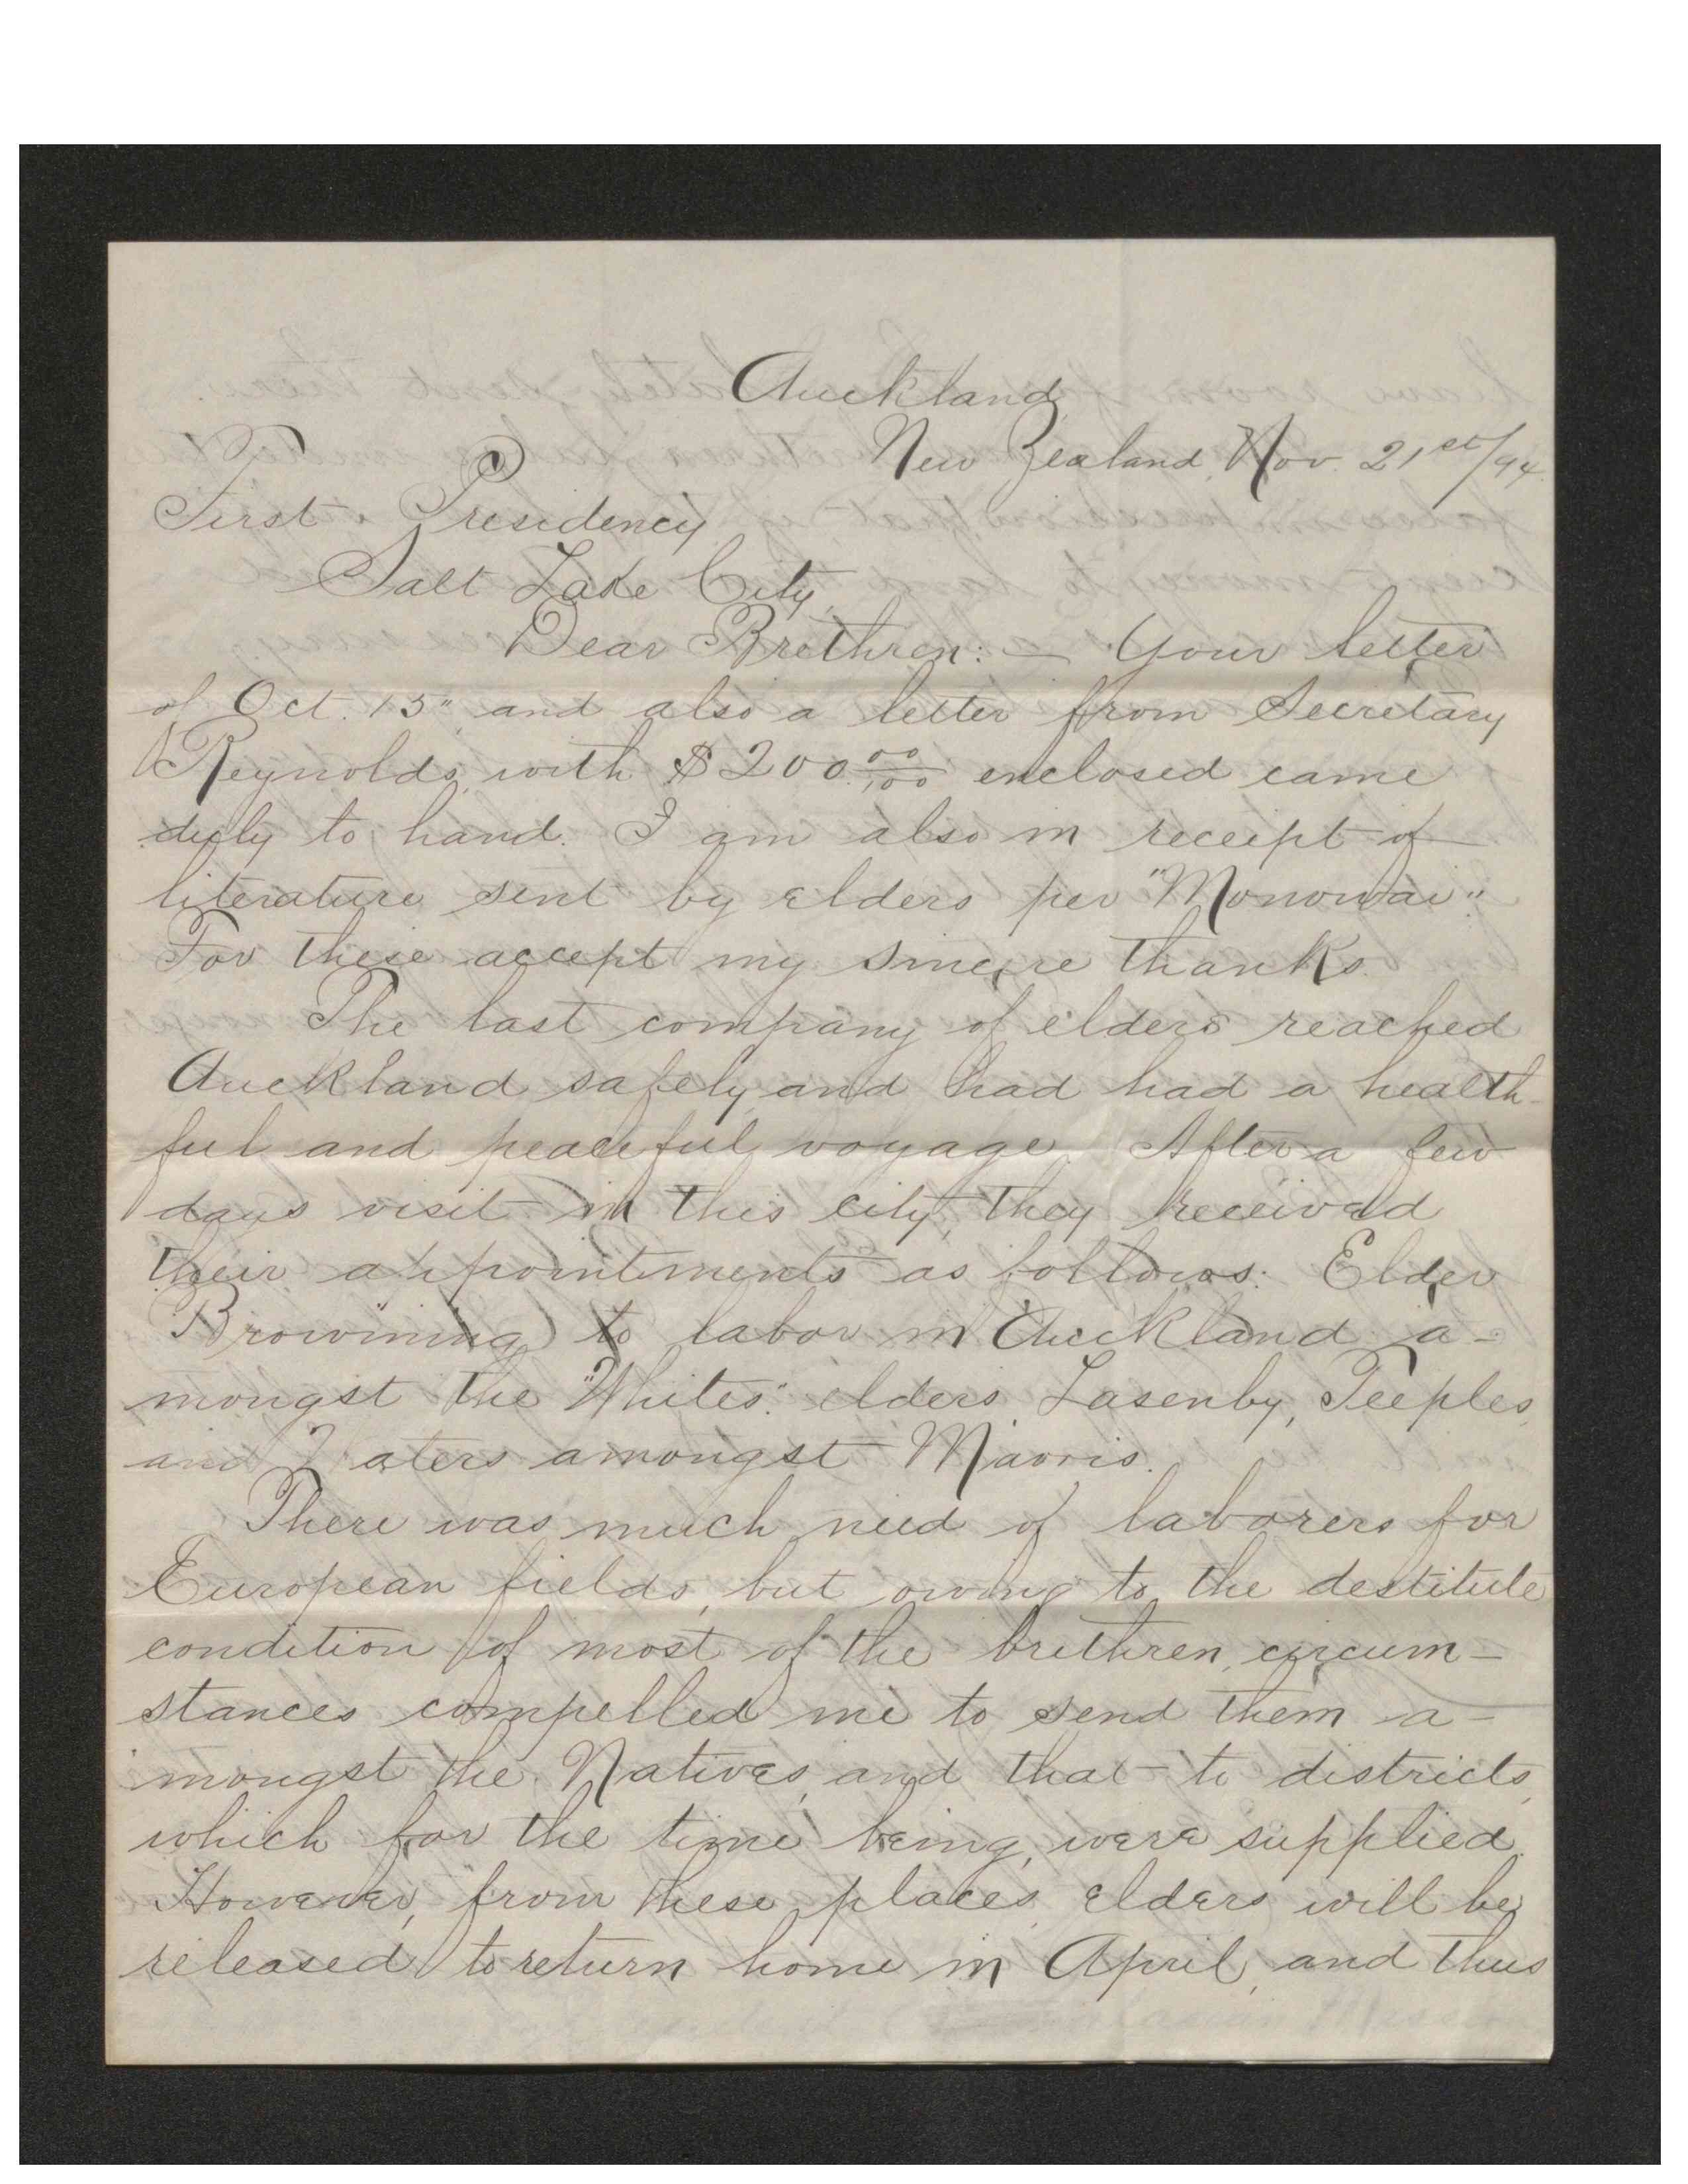 Auckland,
New Zealand, Nov. 21st/94.
First Presidency
Salt Lake City,
Dear Brethren: — Your letter
of Oct. 13" and also a letter from Secretary
Reynolds, with $200.00/100 enclosed came
duly to hand. I am also in receipt of
literature sent by elders per "Monowai".
For these accept my sincere thanks.
The last company of elders reached
Auckland safely, and had had a health-
ful and peaceful voyage. After a few
days visit in this city, they received
their appointments as follows: Elder
Browning to labor in Auckland a-
mongst the "Whites." elders Lasenby, Peeples,
and aters amongst Maoris.
There was much need of laborers for
European fields, but owing to the destitute
condition of most of the brethren, circum-
stances compelled me to send them a-
mongst the Natives, and that to districts,
which for the time being, were supplied.
However, from these places elders will be
released to return home in April, and thus